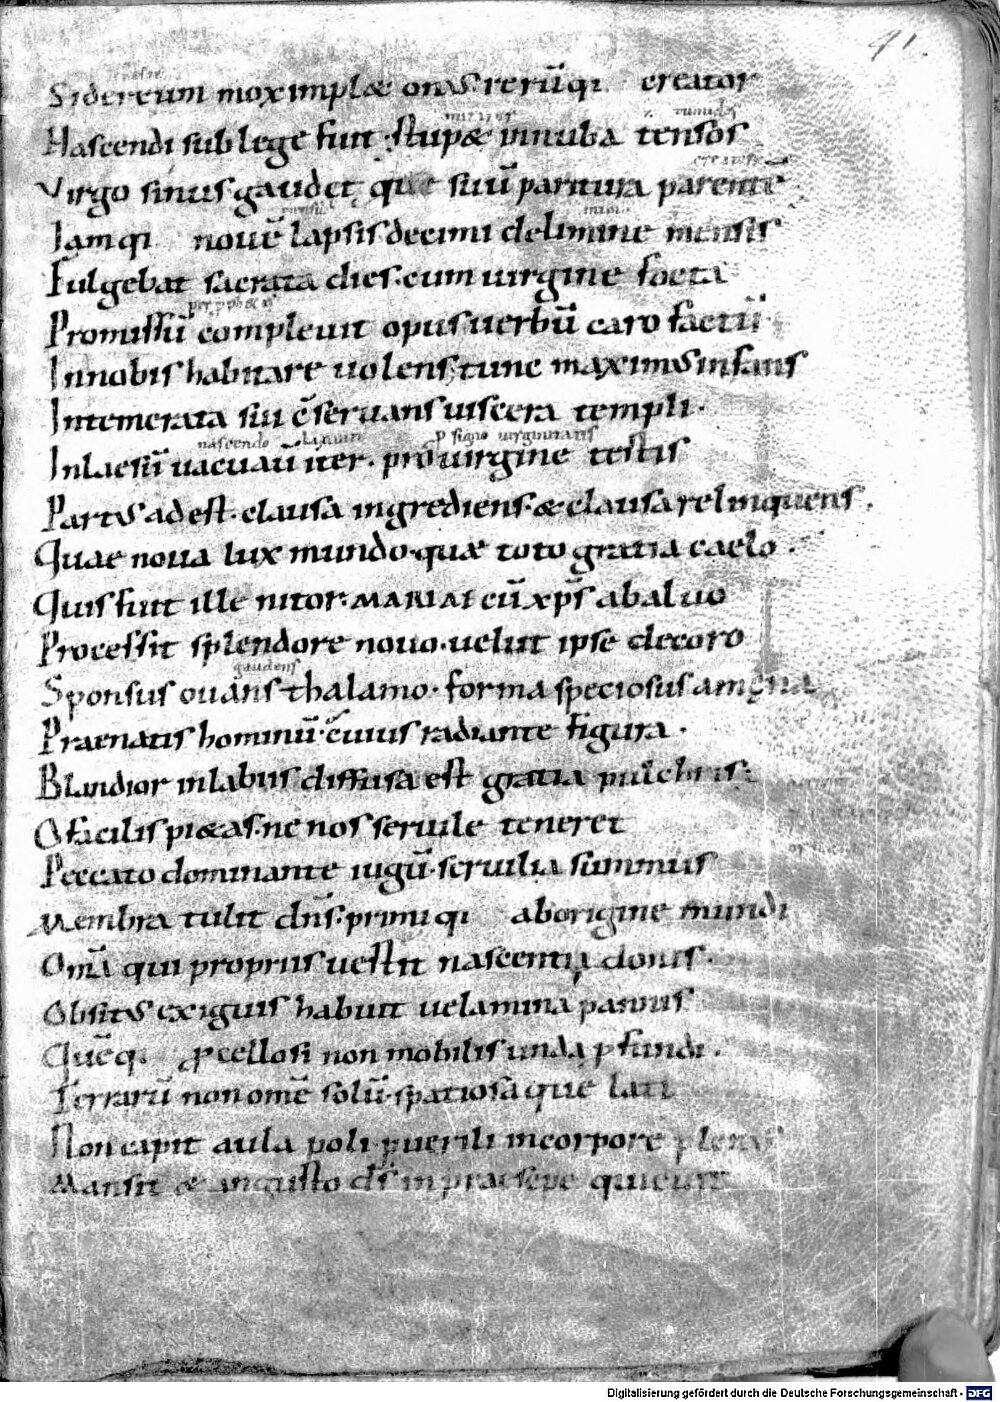 41.
Sidereum mox implæ onus rerūq; creator
Nascendi sub lege fuit. stupæ innuba tensos
Virgo sinus. gaudet quae suū paritura parentē
Iamq; nouē lapsis decimi de limine mensis
Fulgebat sacrata dies. cum uirgine foeta
Promissū compleuit opus uerbū caro factū
In nobis habitare uolens. tunc maximus infans
Intemerata sui c̄seruans uiscera templi.
nascendo p signo uirginitatis
Inlaesū uacuauit iter. pro uirgine testis
Partus adest. clausa ingrediens. & clausa relinquens.
Quae noua lux mundo. quæ toto gratia caelo.
Quis fuit ille nitor. MARIAE cū xp̄s ab aluo
Processit splendore nouo. uelut ipse decoro
gaudens
Sponsus ouans thalamo. forma speciosus amęna
Prae natis hominū. cuius radiante figura.
Blandior in labiis diffusa est gratia pulchris.
O facilis pi&as. ne nos seruile teneret
Peccato dominante iugū. seruilia summus
Membra tulit dn̄s. primiq; ab origine mundi
Om̄a qui propriis uestit nascentia donis.
Obsitus exiguis habuit uelamina pannis
Quēq; procellosi non mobilis unda pfundi.
Terrarū non omē solū. spatiosa que lati
Non capit aula poli. puerili in corpore plenus
Mansit & angusto ds̄ in praesepe quieuit
Digitalisierung gefördert durch die Deutsche Forschungsgemeinschaft - DFG